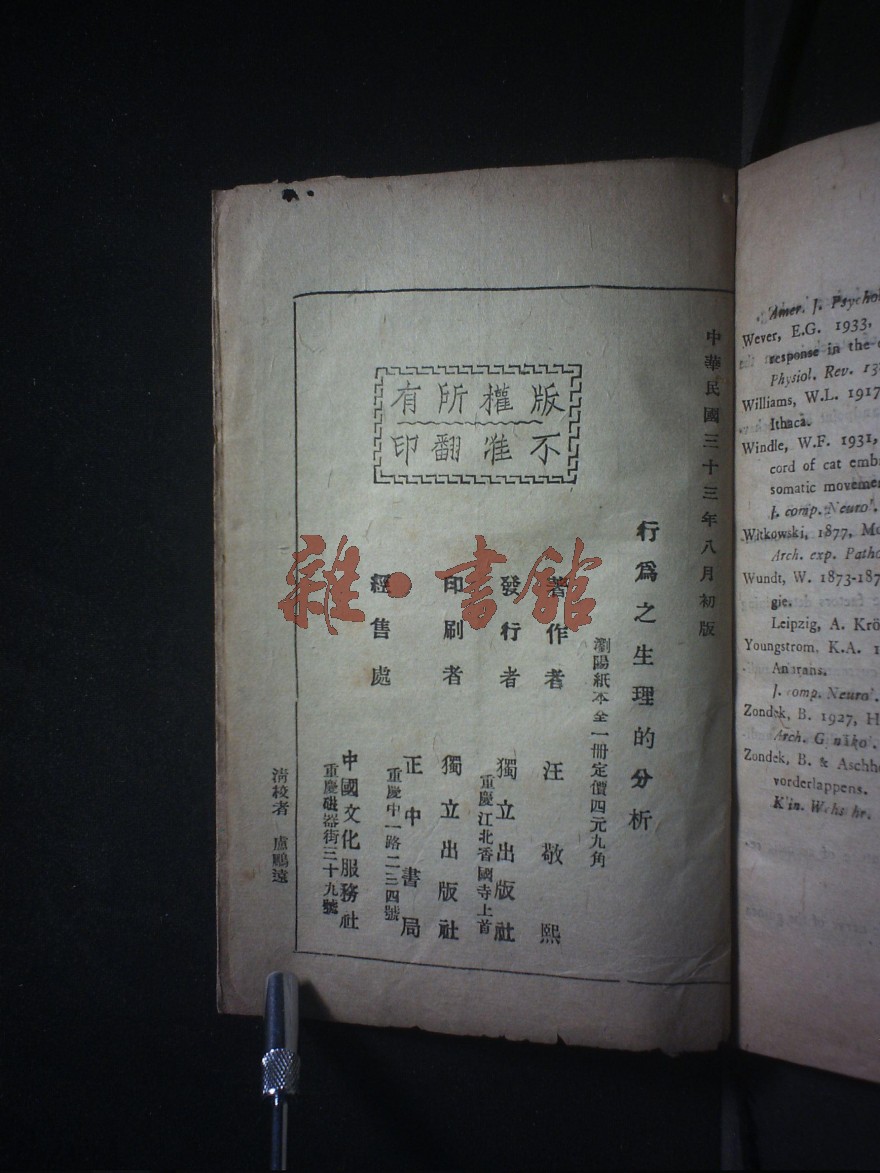 中華民國三十三年八月初版
行爲之生理的分析
瀏陽紙本全一册定價四元九角
版權所有
不准翻印
著作者 汪敬熙
發行者 獨立出版社
重慶江北香國寺上首
印刷者 獨立出版社
經售處 正中書局
重慶中一路二三四號
中國文化服務社
重慶磁器街三十九號
清校者 盧鵬遠
雜·書館
Amer. J. Psychol
Wever, E.G. 1933,
response in the
Physiol. Rev.
Williams, W.L. 1917
Ithaca.
Windle, W.F. 1931,
cord of cat emb
somatic moveme
J. comp. Neuro'.
Witkowski, 1877, Mo
Arch. exp. Patho
Wundt, W. 1873-187
gie.
Leipzig, A. Krö
Youngstrom, K.A. 1
J. comp. Neuro'.
Zondek, B. 1927, H
Zondek, B. & Aschh
vorderlappens.